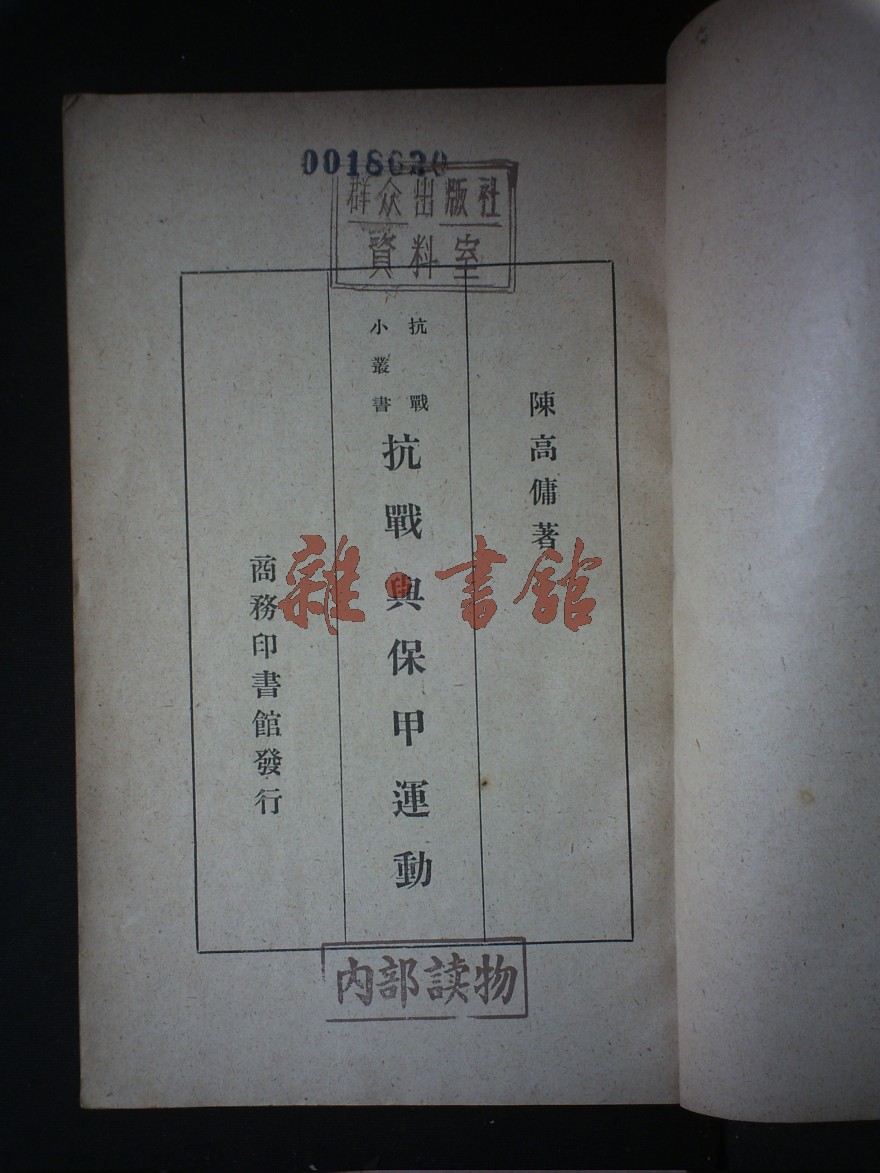 0018620
群众出版社
資料室
陳高傭著
抗戰
小叢書
抗戰與保甲運動
商務印書館發行
雜·書館
内部读物